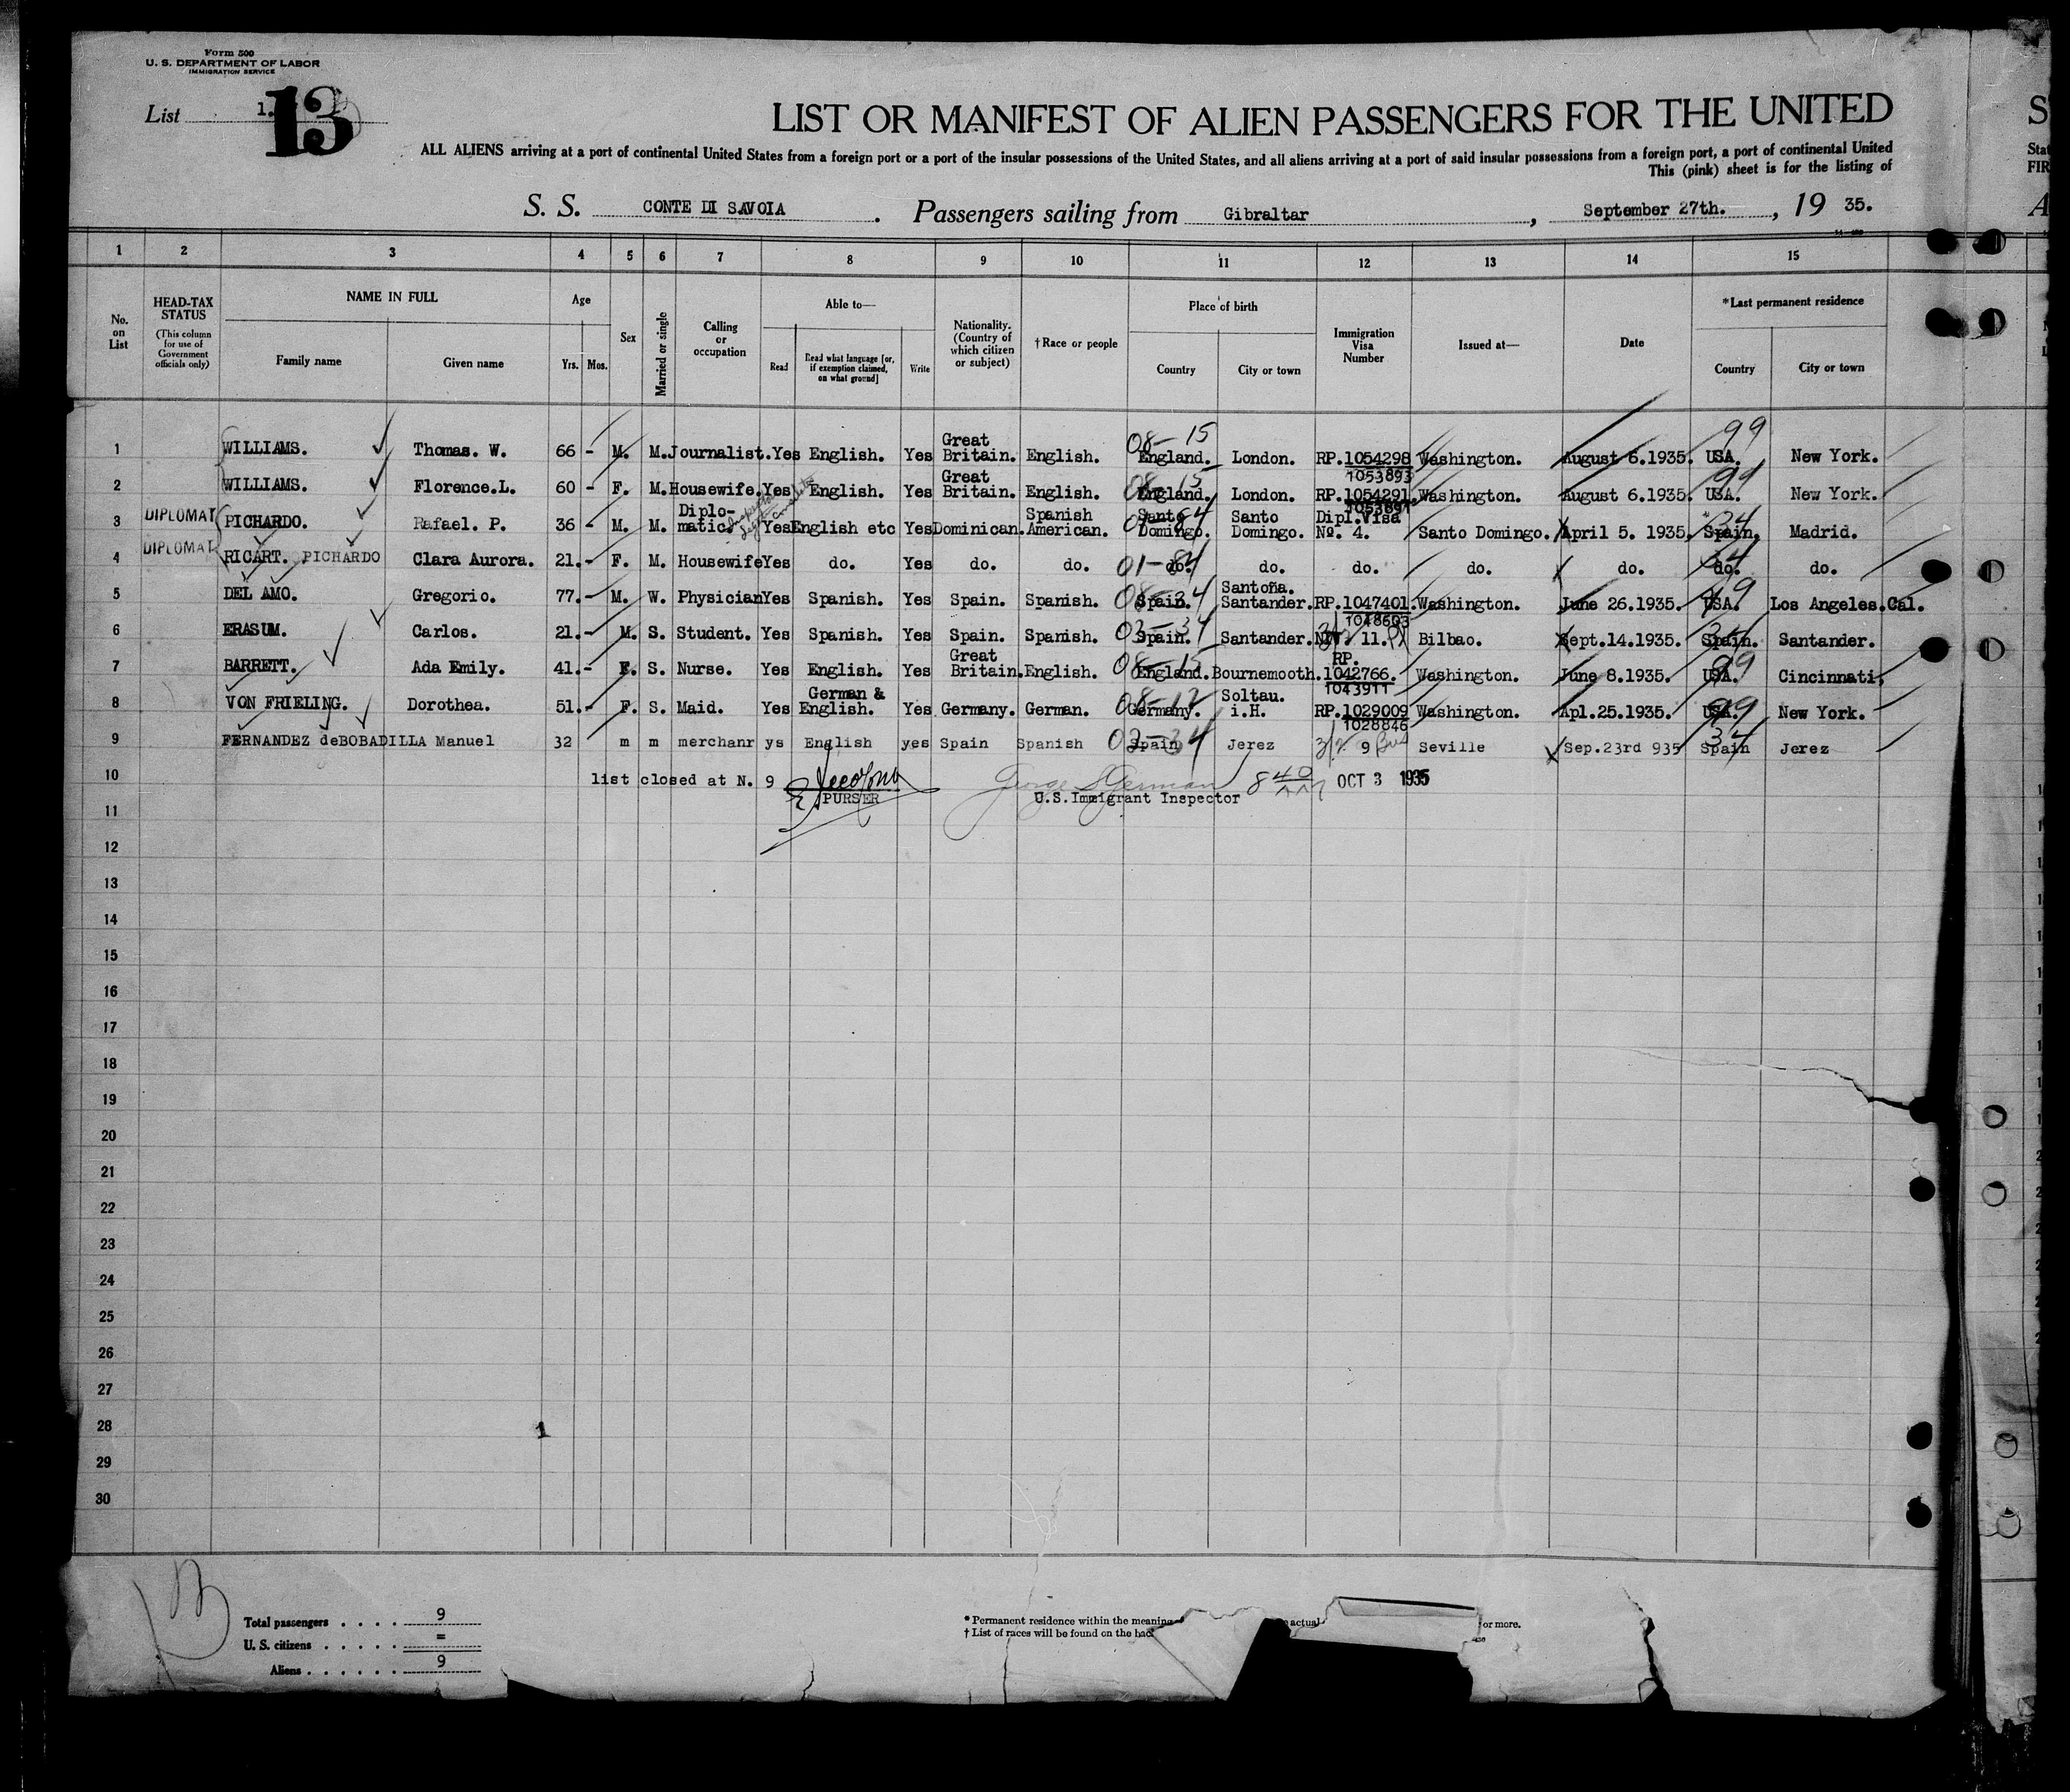 Form 500
U. S. DEPARTMENT OF LABOR
IMMIGRATION SERVICE
List 1.
13
LIST OR MANIFEST OF ALIEN PASSENGERS FOR THE UNITED
ALL ALIENS arriving at a port of continental United States from a foreign port or a port of the insular possessions of the United States, and all aliens arriving at a port of said insular possessions from a foreign port, a port of continental United
This (pink) sheet is for the listing of
S. S. CONTE DI SAVOIA . Passengers sailing from Gibraltar , September 27th. , 19 35.
S
Stat
FIR
A
1 2 3 4 5 6 7 8 9 10 11 12 13 14 15
No. on List
HEAD-TAX STATUS
(This column for use of Government officials only)
NAME IN FULL
Family name
Given name
Age
Yrs. Mos.
Sex
Married or single
Calling or occupation
Able to—
Read
Read what language [or, if exemption claimed, on what ground]
Write
Nationality. (Country of which citizen or subject)
†Race or people
Place of birth
Country
City or town
Immigration Visa Number
Issued at—
Date
*Last permanent residence
Country
City or town
1 WILLIAMS. Thomas. W. 66 - M. M. Journalist. Yes English. Yes Great Britain. English. 08-15 England. London. RP.1054298 1053893 Washington. August 6.1935. 99 USA. New York.
2 WILLIAMS. Florence.L. 60 - F. M. Housewife. Yes English. Yes Great Britain. English. 08-15 England. London. RP.1054291. 1053891 Washington. August 6.1935. 99 USA. New York.
3 DIPLOMAT PICHARDO. Rafael. P. 36 - M. M. Diplomatic. Yes English etc Yes Dominican. Spanish American. Santo Domingo. Santo Domingo. Dipl.Visa Nº. 4. Santo Domingo. April 5. 1935. 34 Spain. Madrid.
4 DIPLOMAT RICART. PICHARDO Clara Aurora. 21.- F. M. Housewife Yes do. Yes do. do. do. do. do. do. do. 34 do. do.
5 DEL AMO. Gregorio. 77.- M. W. Physician Yes Spanish. Yes Spain. Spanish. 08-34 Spain. Santoña. Santander. RP.1047401. 1048603 Washington. June 26.1935. USA. Los Angeles.Cal.
6 ERASUM. Carlos. 21.- M. S. Student. Yes Spanish. Yes Spain. Spanish. 02-34 Spain. Santander. 11. Bilbao. Sept.14.1935. 34 Spain. Santander.
7 BARRETT. Ada Emily. 41.- F. S. Nurse. Yes English. Yes Great Britain. English. 08-15 England. Bournemouth. RP. 1042766. 1043911 Washington. June 8.1935. 99 USA. Cincinnati,
8 VON FRIELING. Dorothea. 51.- F. S. Maid. Yes German & English. Yes Germany. German. Germany. Soltau. i.H. RP.1029009 1028846 Washington. Apl.25.1935. 99 USA. New York.
9 FERNANDEZ deBOBADILLA Manuel 32 m m merchanr ys English yes Spain Spanish 02-34 Spain Jerez 9 Seville Sep.23rd 935 34 Spain Jerez
10 list closed at N. 9
PURSER
George S German
U.S.Immigrant Inspector
8 40 AM
OCT 3 1935
11
12
13
14
15
16
17
18
19
20
21
22
23
24
25
26
27
28 1
29
30
Total passengers . . . . 9
U. S. citizens . . . . . =
Aliens . . . . . . 9
* Permanent residence within the meaning actual or more.
† List of races will be found on the bac